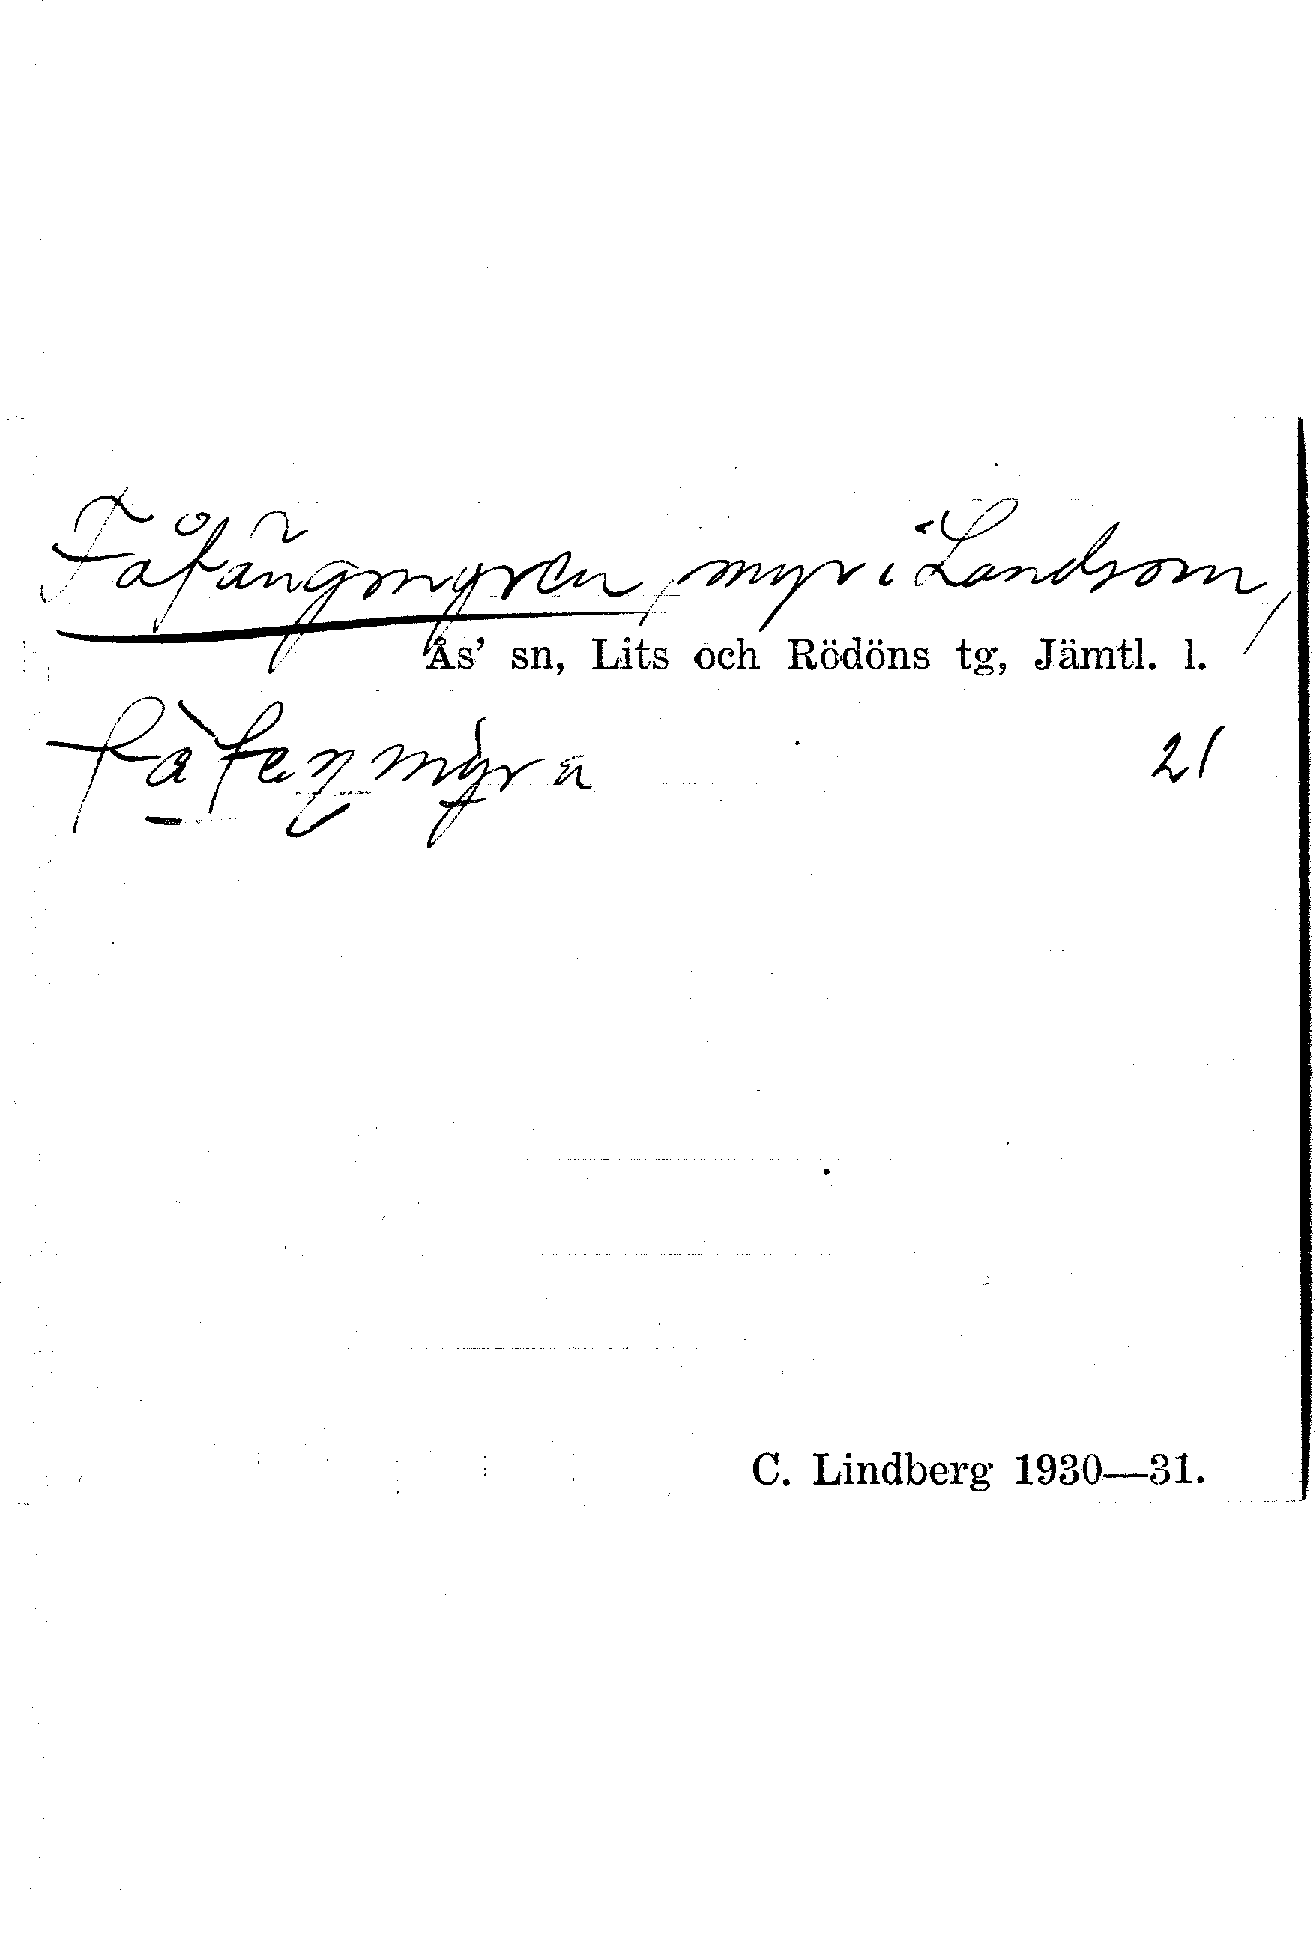 Fåfängmyren, myr i Landsom,
Ås' sn, Lits och Rödöns tg, Jämtl. l.
fàfeŋmyra 21
C. Lindberg 1930—31.